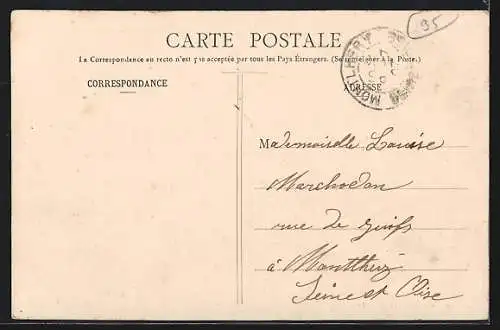 95
CARTE POSTALE
La Correspondance au recto n'est pas acceptée par tous les Pays Étrangers. (Se renseigner à la Poste.)
CORRESPONDANCE
ADRESSE
MONTLHERY
Mademoiselle Louise
rue de
à Montlhéry
Seine et Oise